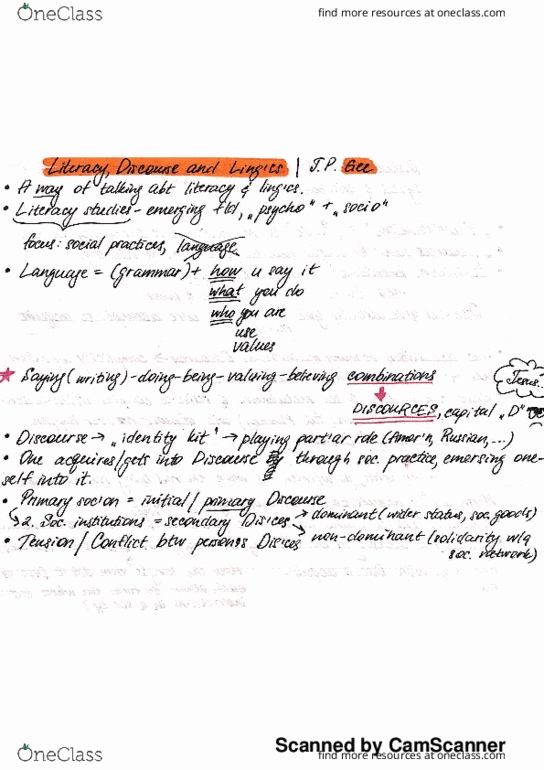 OneClass
find more resources at oneclass.com
Literacy, Discourse and Lingics | J.P. Gee
• A way of talking abt literacy & lingics.
• Literacy studies - emerging fld, „psycho" + „socio"
focus: social practices, language
• Language = (grammar) + how u say it
what you do
who you are
use
values
★ Saying (writing)-doing-being-valuing-believing combinations
Jesus.
DISCOURCES, capital „D"
• Discourse → „identity kit" → playing part'ar role (Amer'n, Russian,...)
• One acquires/gets into Discourse through soc. practice, emersing one-
self into it.
• Primary socion = initial / primary Discourse
↳ 2. Soc. institutions = secondary Dis'ces → dominant (wider status, soc. goods)
• Tension / Conflict btw person's Dis'ces → non-dominant (solidarity w/a
soc. network)
Scanned by CamScanner
OneClass
find more resources at oneclass.com